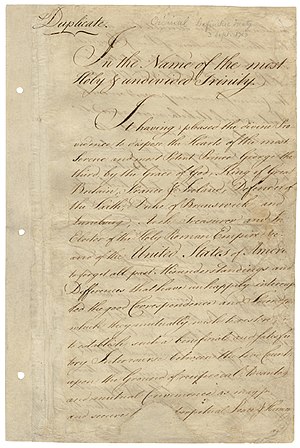 Duplicate.
Original Definitive Treaty
3 Sept. 1783
In the Name of the most
Holy & undivided Trinity.
It having pleased the divine Pro
vidence to dispose the Hearts of the most
Serene and most Potent Prince George the
third, by the Grace of God, King of Great
Britain, France & Ireland, Defender of
the Faith, Duke of Brunswick and
Lunebourg, Arch Treasurer, and Prince
Elector of the Holy Roman Empire &c
and of the United States of America
to forget all past Misunderstandings and
Differences that have unhappily interrup
ted the good Correspondence and Friendship
which they mutually wish to restore; and
to establish such a beneficial and satisfac
tory Intercourse between the two Countries
upon the Ground of reciprocal Advantages
and mutual Convenience as may
and secure perpetual Peace & Harmony